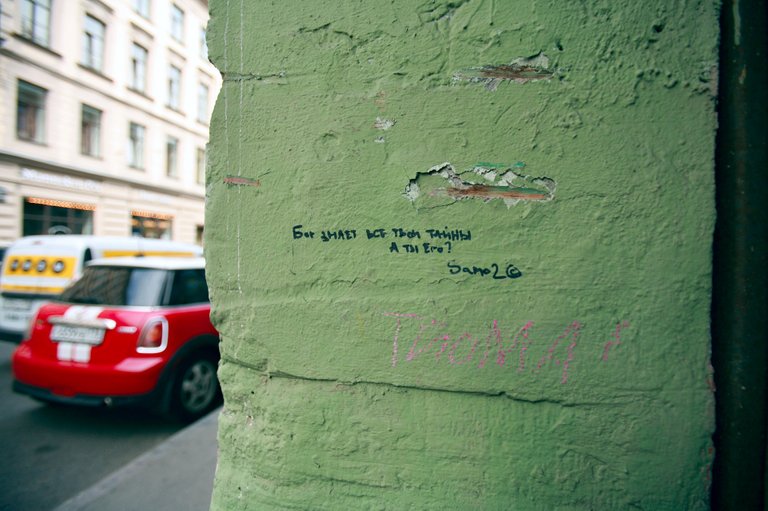 Бог знает все твои тайны
А ты Его?
Samo2©